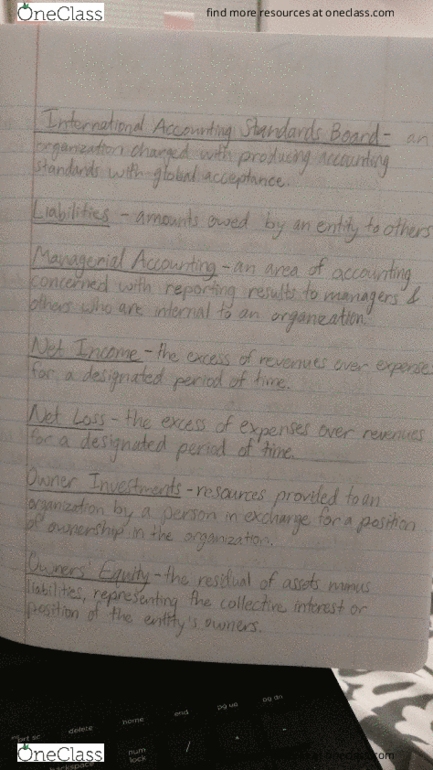 OneClass
find more resources at oneclass.com
International Accounting Standards Board - an
organization charged with producing accounting
standards with global acceptance.
Liabilities - amounts owed by an entity to others
Managerial Accounting - an area of accounting
concerned with reporting results to managers &
others who are internal to an organization.
Net Income - the excess of revenues over expenses
for a designated period of time.
Net Loss - the excess of expenses over revenues
for a designated period of time.
Owner Investments - resources provided to an
organization by a person in exchange for a position
of ownership in the organization.
Owners' Equity - the residual of assets minus
liabilities, representing the collective interest or
position of the entity's owners.
prt sc
delete
home
end
pg up
pg dn
backspace
num
lock
/
OneClass
find more resources at oneclass.com